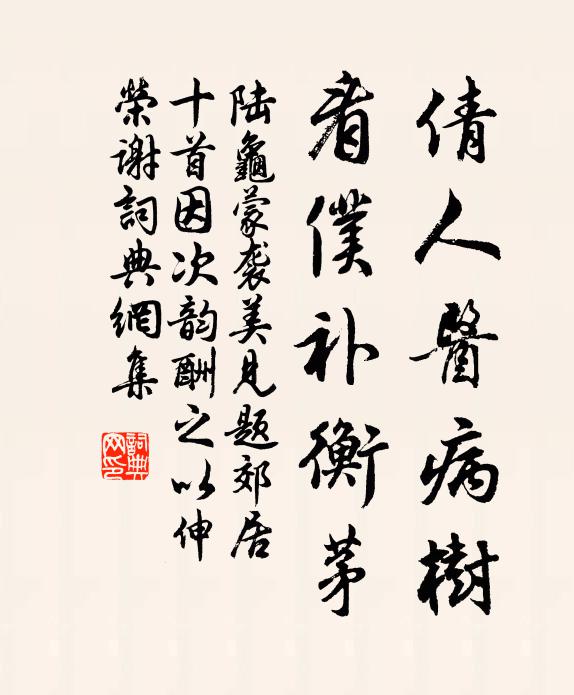 倩人醫病樹
看僕补衡茅
陆龜蒙袭美見题郊居
十首因次韵酬之以伸
榮谢詞典網集
詞典网印